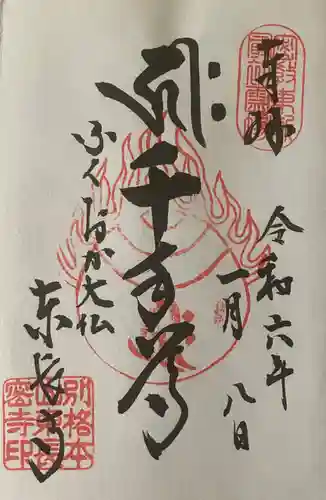 奉拝
令和六年
一月八日
千手尊
ふくおか大仏
東長寺
別格本
山東長
密寺印